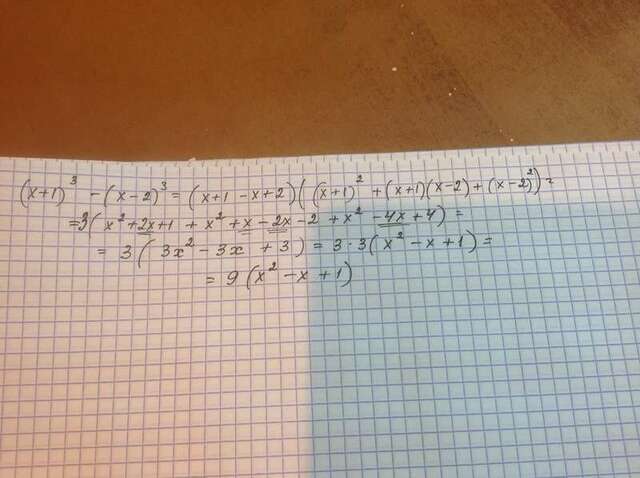 (x+1)³ - (x-2)³ = (x+1 -x+2)((x+1)² +(x+1)(x-2)+(x-2)²)=
=3(x²+2x+1 + x²+x-2x-2 + x² -4x+4) =
= 3(3x²-3x +3) = 3·3(x²-x+1)=
= 9(x²-x+1)